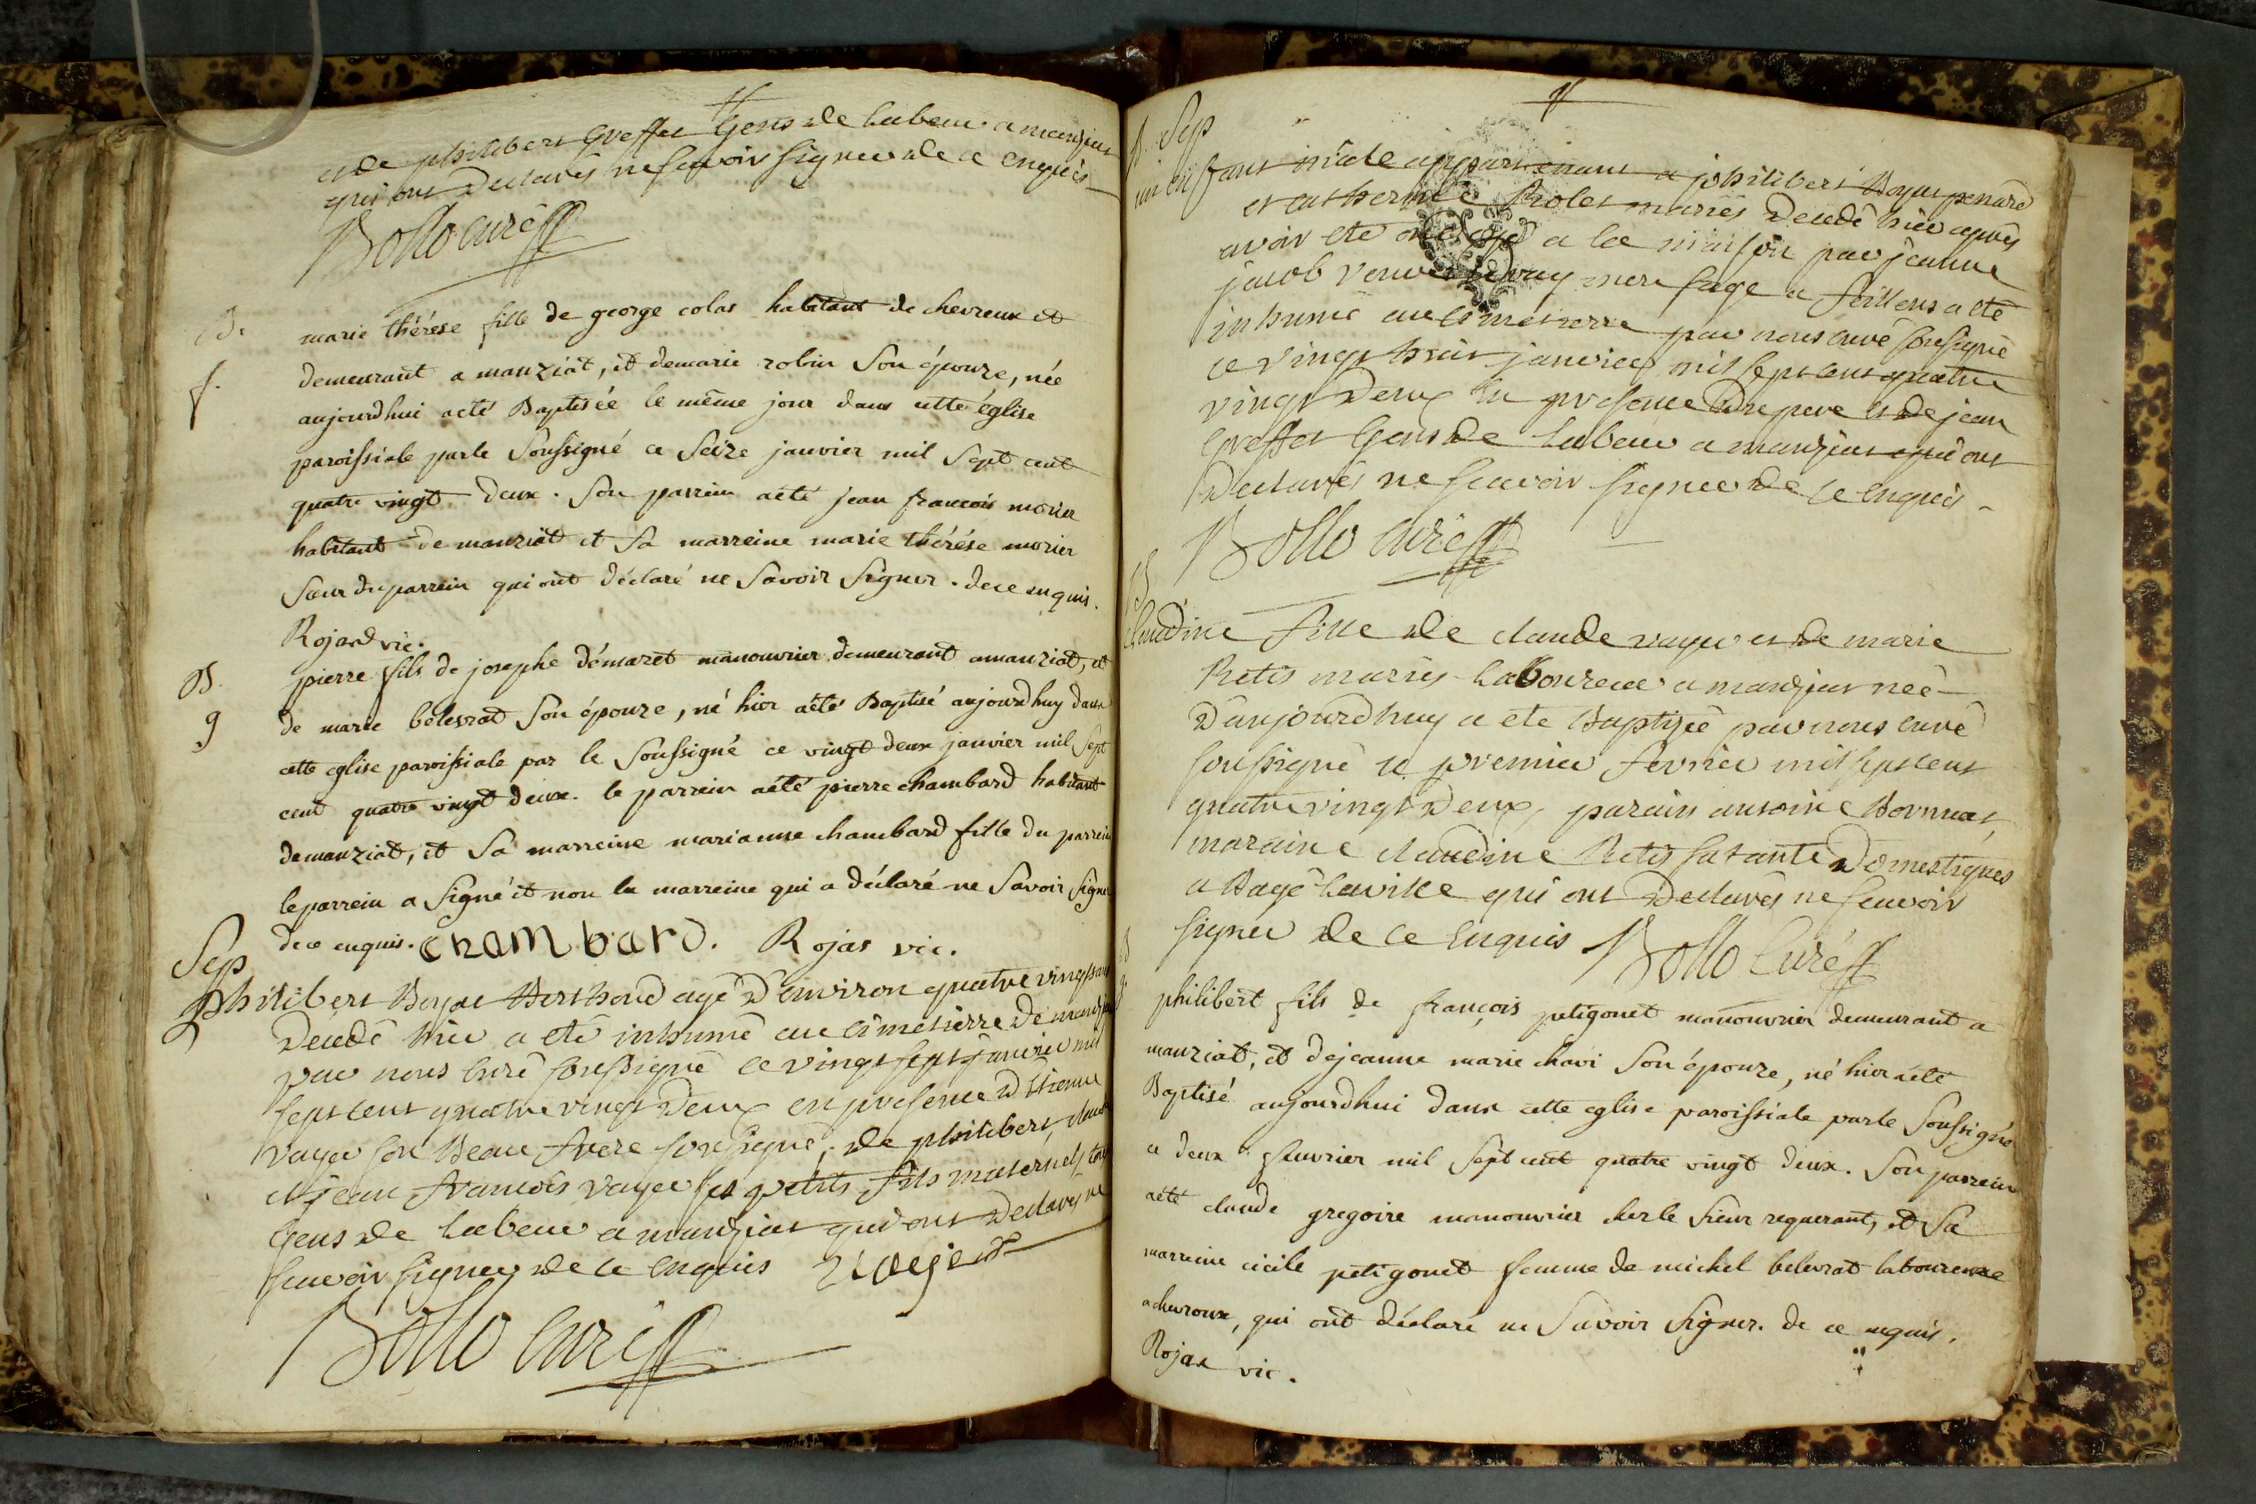 et de philibert Greffet Gens de labeur a manziat
qui ont declarés ne sçavoir signer de ce enquis
Bollo curé
B.
f.
marie thérése fille de george colas habitant de chevreux et
demeurant a manziat, et de marie robin Son épouze, née
aujourdhui a eté Baptisée le même jour dans cette église
paroissiale par le Soussigné ce Seize janvier mil Sept cent
quatre vingt deux. Son parrein a été jean francois morier
habitant de manziat et Sa marreine marie thérése morier
Sœur du parrein qui ont déclaré ne Savoir Signer. de ce enquis.
Rojas vic.
B.
g
pierre fils de josephe démaret manouvrier demeurant a manziat, et
de marie belevrat Son épouze, né hier a été Baptisé aujourdhuy dans
cette eglise paroissiale par le Soussigné ce vingt deux janvier mil Sept
cent quatre vingt deux. le parrein a été pierre chambard habitant
de manziat, et Sa marreine marianne chambard fille du parrein
le parrein a Signé et non la marreine qui a déclaré ne Savoir Signer
de ce enquis. chambard. Rojas vic.
Sep
philibert Boyat Berthoud agé d'environ quatre vingt ans
decedé hier a eté inhumé au cimetierre de manziat
par nous curé soussigné ce vingt sept janvier mil
sept cent quatre vingt deux en presence d'Etienne
vayer son Beau frere soussigné, de philibert, claude
et jean francois vayer ses petits fils maternels tous
Gens de labeur a manziat qui ont declarés ne
sçavoir signer de ce enquis
Bollo curé
Sep
un enfant mâle appartenant a philibert Boyat penard
et catherine Brolet mariés decedé hier après
avoir eté ondoyé a la maison par jeanne
jacob veuve mere sage a feillens a eté
inhumé au cimetierre par nous curé soussigné
ce vingt huit janvier mil sept cent quatre
vingt deux en presence du pere et de jean
Greffet Gens de labeur a manziat qui ont
declarés ne sçavoir signer de ce enquis
Bollo curé
B
claudine fille de claude vayer et de marie
Retis mariés laboureur a manziat née
d'aujourdhuy a eté Baptizée par nous curé
soussigné le premier fevrier mil sept cent
quatre vingt deux, parain antoine Bornuat,
maraine claudine Retis sa tante Domestiques
a Bagé la ville qui ont declarés ne sçavoir
signer de ce enquis Bollo Curé
B
g
philibert fils de françois petigonet manouvrier demeurant a
manziat, et de jeanne marie chavi Son épouze, né hier a été
Baptisé aujourdhui dans cette eglise paroissiale par le Soussigné
ce deux feuvrier mil Sept cent quatre vingt deux. Son parrein
a été claude gregoire manouvrier cher le Sieur requerant, et Sa
marreine cicile petigonet femme de michel belevrat laboureur
a chevroux, qui ont déclaré ne Savoir Signer. de ce enquis.
Rojas vic.